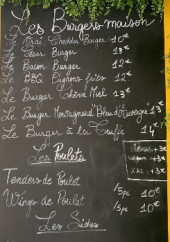 Les Burgers maison
Le Crai Cheddar Burger 10€
Le Cheer Burger 13€
Le Bacon Burger 12€
Le BBQ Oignons frits 12€
Le Burger Chèvre Miel 13€
Le Burger Montagnard Bleu d'Auvergne 13€
Le Burger à la Truffe 14€
Les Poulets
Menus +3€
+3€
XXL +3€
Tenders de Poulet /5pc 10€
Wings de Poulet /5pc 10€
Les